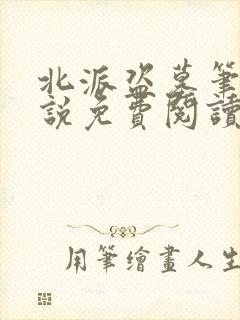 北派盗墓筆
說免費閱讀
用筆繪畫人生